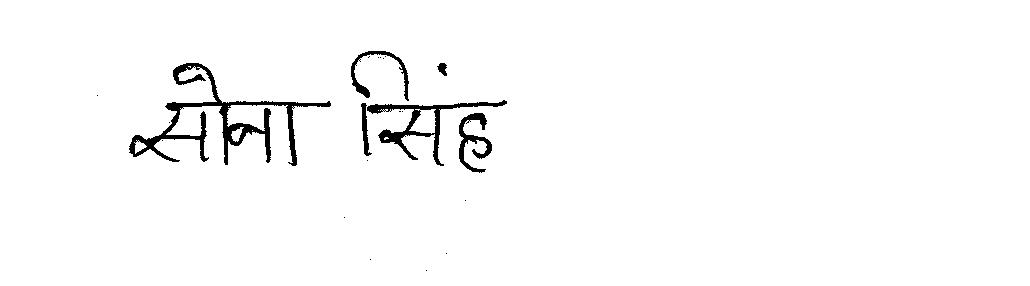 सोना सिंह